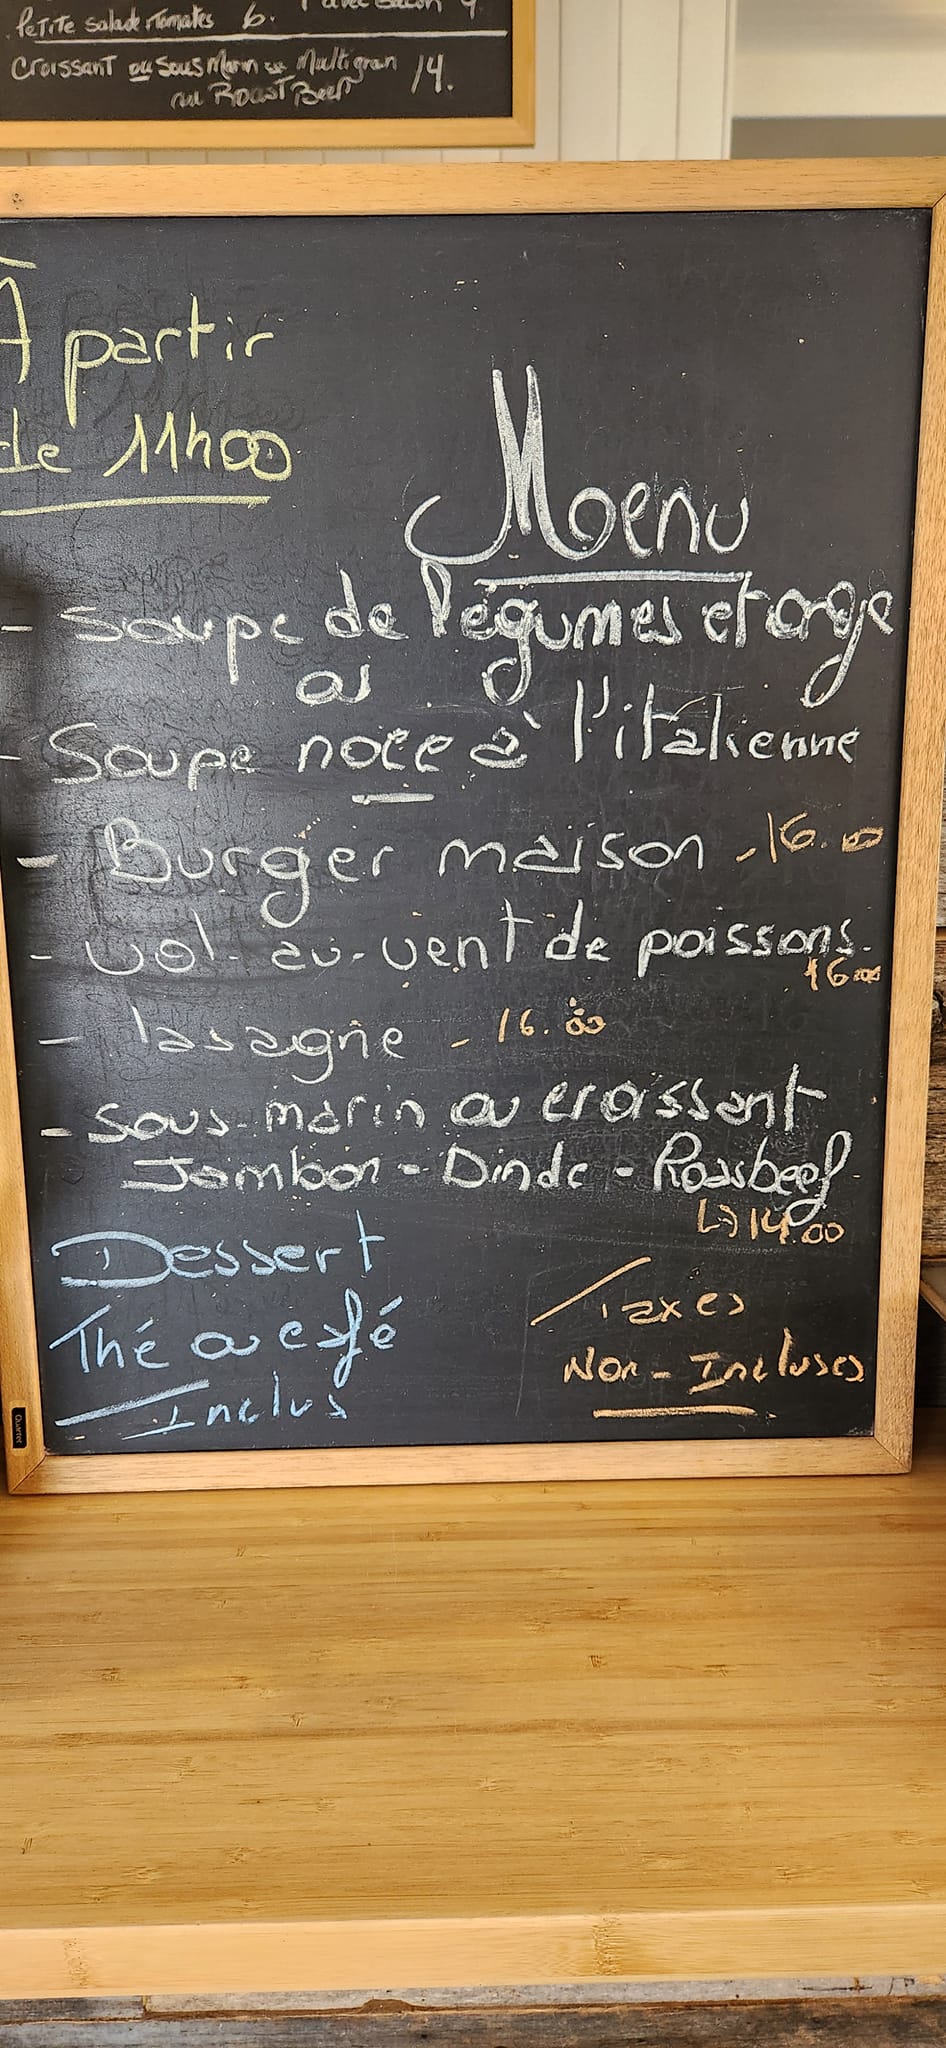 Petite salade, tomates 6.
Croissant ou sous marin ou Multigrain 14.
Roast Beef
À partir
de 11h00
Menu
- Soupe de légumes et orge
ou
- Soupe noce à l'italienne
- Burger maison - 16.00
- Vol-au-vent de poissons
16.00
- lasagne - 16.00
- Sous-marin ou croissant
Jambon - Dinde - Roasbeef
14.00
Dessert
Thé ou café
Inclus
Taxes
Non-Incluses
Quartet